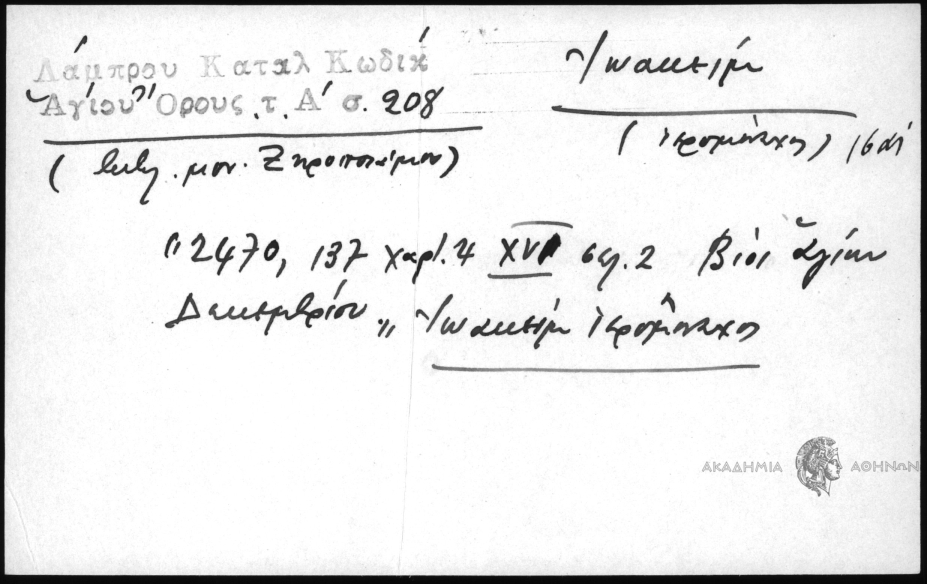 Λάμπρου Καταλ Κωδίκ
Ἁγίου Ὄρους τ. Α' σ. 208
( μον. Ξηροποτάμου)
Ἰωακείμ
(ἱερομόναχος) 16 αἰ
"2470, 137 χαρτ. 4 XVI σελ. 2 Βίοι ἁγίων
Δεκεμβρίου „ Ἰωακείμ ἱερομόναχος
ΑΚΑΔΗΜΙΑ ΑΘΗΝΩΝ